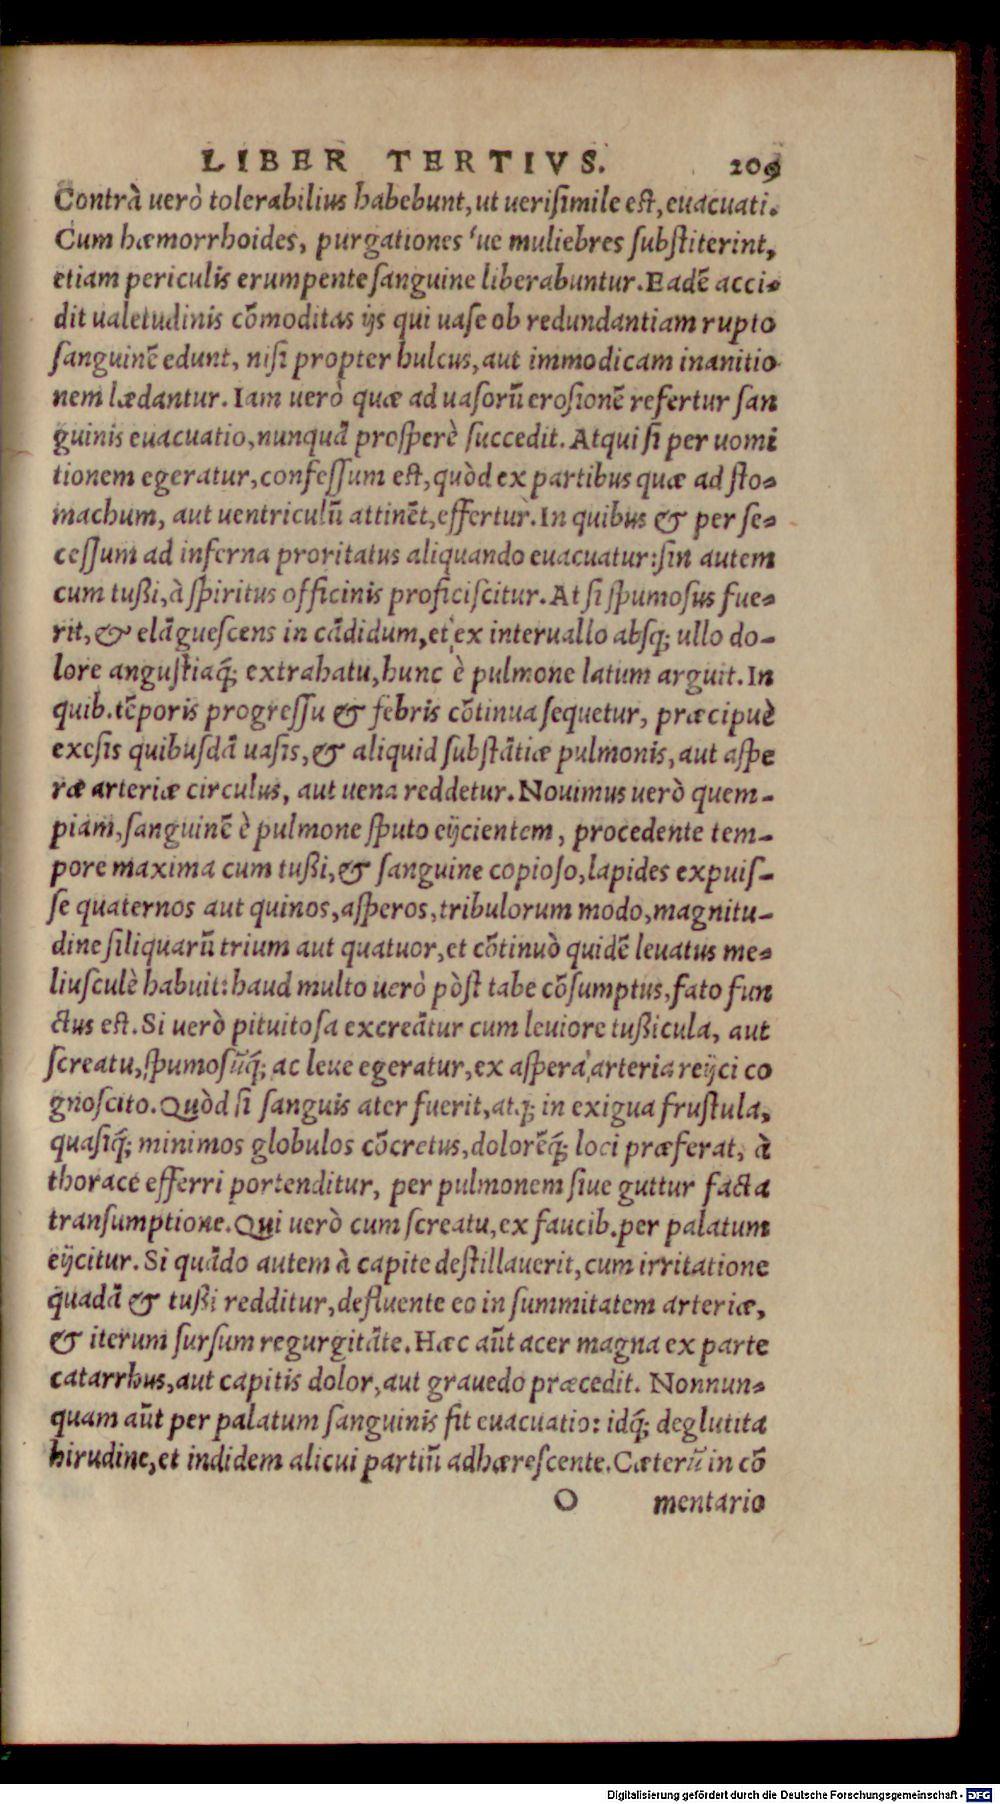 LIBER TERTIVS. 209
Contrà uerò tolerabilius habebunt, ut uerisimile est, euacuati.
Cum hæmorrhoides, purgationes 'ue muliebres substiterint,
etiam periculis erumpente sanguine liberabuntur. Eadē acci-
dit ualetudinis cōmoditas ijs qui uase ob redundantiam rupto
sanguinē edunt, nisi propter hulcus, aut immodicam inanitio
nem lædantur. Iam uerò quæ ad uasorū erosionē refertur san
guinis euacuatio, nunquā prosperè succedit. Atqui si per uomi
tionem egeratur, confessum est, quòd ex partibus quæ ad sto-
machum, aut uentriculū attinēt, effertur. In quibus & per se-
cessum ad inferna proritatus aliquando euacuatur: sin autem
cum tußi, à spiritus officinis proficiscitur. At si spumosus fue-
rit, & elāguescens in cādidum, et ex interuallo absq; ullo do-
lore angustiaq́; extrahatu, hunc è pulmone latum arguit. In
quib. tēporis progressu & febris cōtinua sequetur, præcipuè
exesis quibusdā uasis, & aliquid substātiæ pulmonis, aut aspe
ræ arteriæ circulus, aut uena reddetur. Nouimus uerò quem-
piam, sanguinē è pulmone sputo eijcientem, procedente tem-
pore maxima cum tußi, & sanguine copioso, lapides expuis-
se quaternos aut quinos, asperos, tribulorum modo, magnitu-
dine siliquarū trium aut quatuor, et cōtinuò quidē leuatus me-
liusculè habuit: haud multo uerò pòst tabe cōsumptus, fato fun
ctus est. Si uerò pituitosa excreātur cum leuiore tußicula, aut
screatu, spumosūq́; ac leue egeratur, ex aspera arteria reijci co
gnoscito. Quòd si sanguis ater fuerit, atq; in exigua frustula,
quasiq́; minimos globulos cōcretus, dolorēq́; loci præferat, à
thorace efferri portenditur, per pulmonem siue guttur facta
transumptione. Qui uerò cum screatu, ex faucib. per palatum
eijcitur. Si quādo autem à capite destillauerit, cum irritatione
quadā & tußi redditur, defluente eo in summitatem arteriæ,
& iterum sursum regurgitāte. Hæc aūt acer magna ex parte
catarrhus, aut capitis dolor, aut grauedo præcedit. Nonnun-
quam aūt per palatum sanguinis fit euacuatio: idq́; deglutita
hirudine, et indidem alicui partiū adhærescente. Cæterū in cō
O mentario
Digitalisierung gefördert durch die Deutsche Forschungsgemeinschaft - DFG